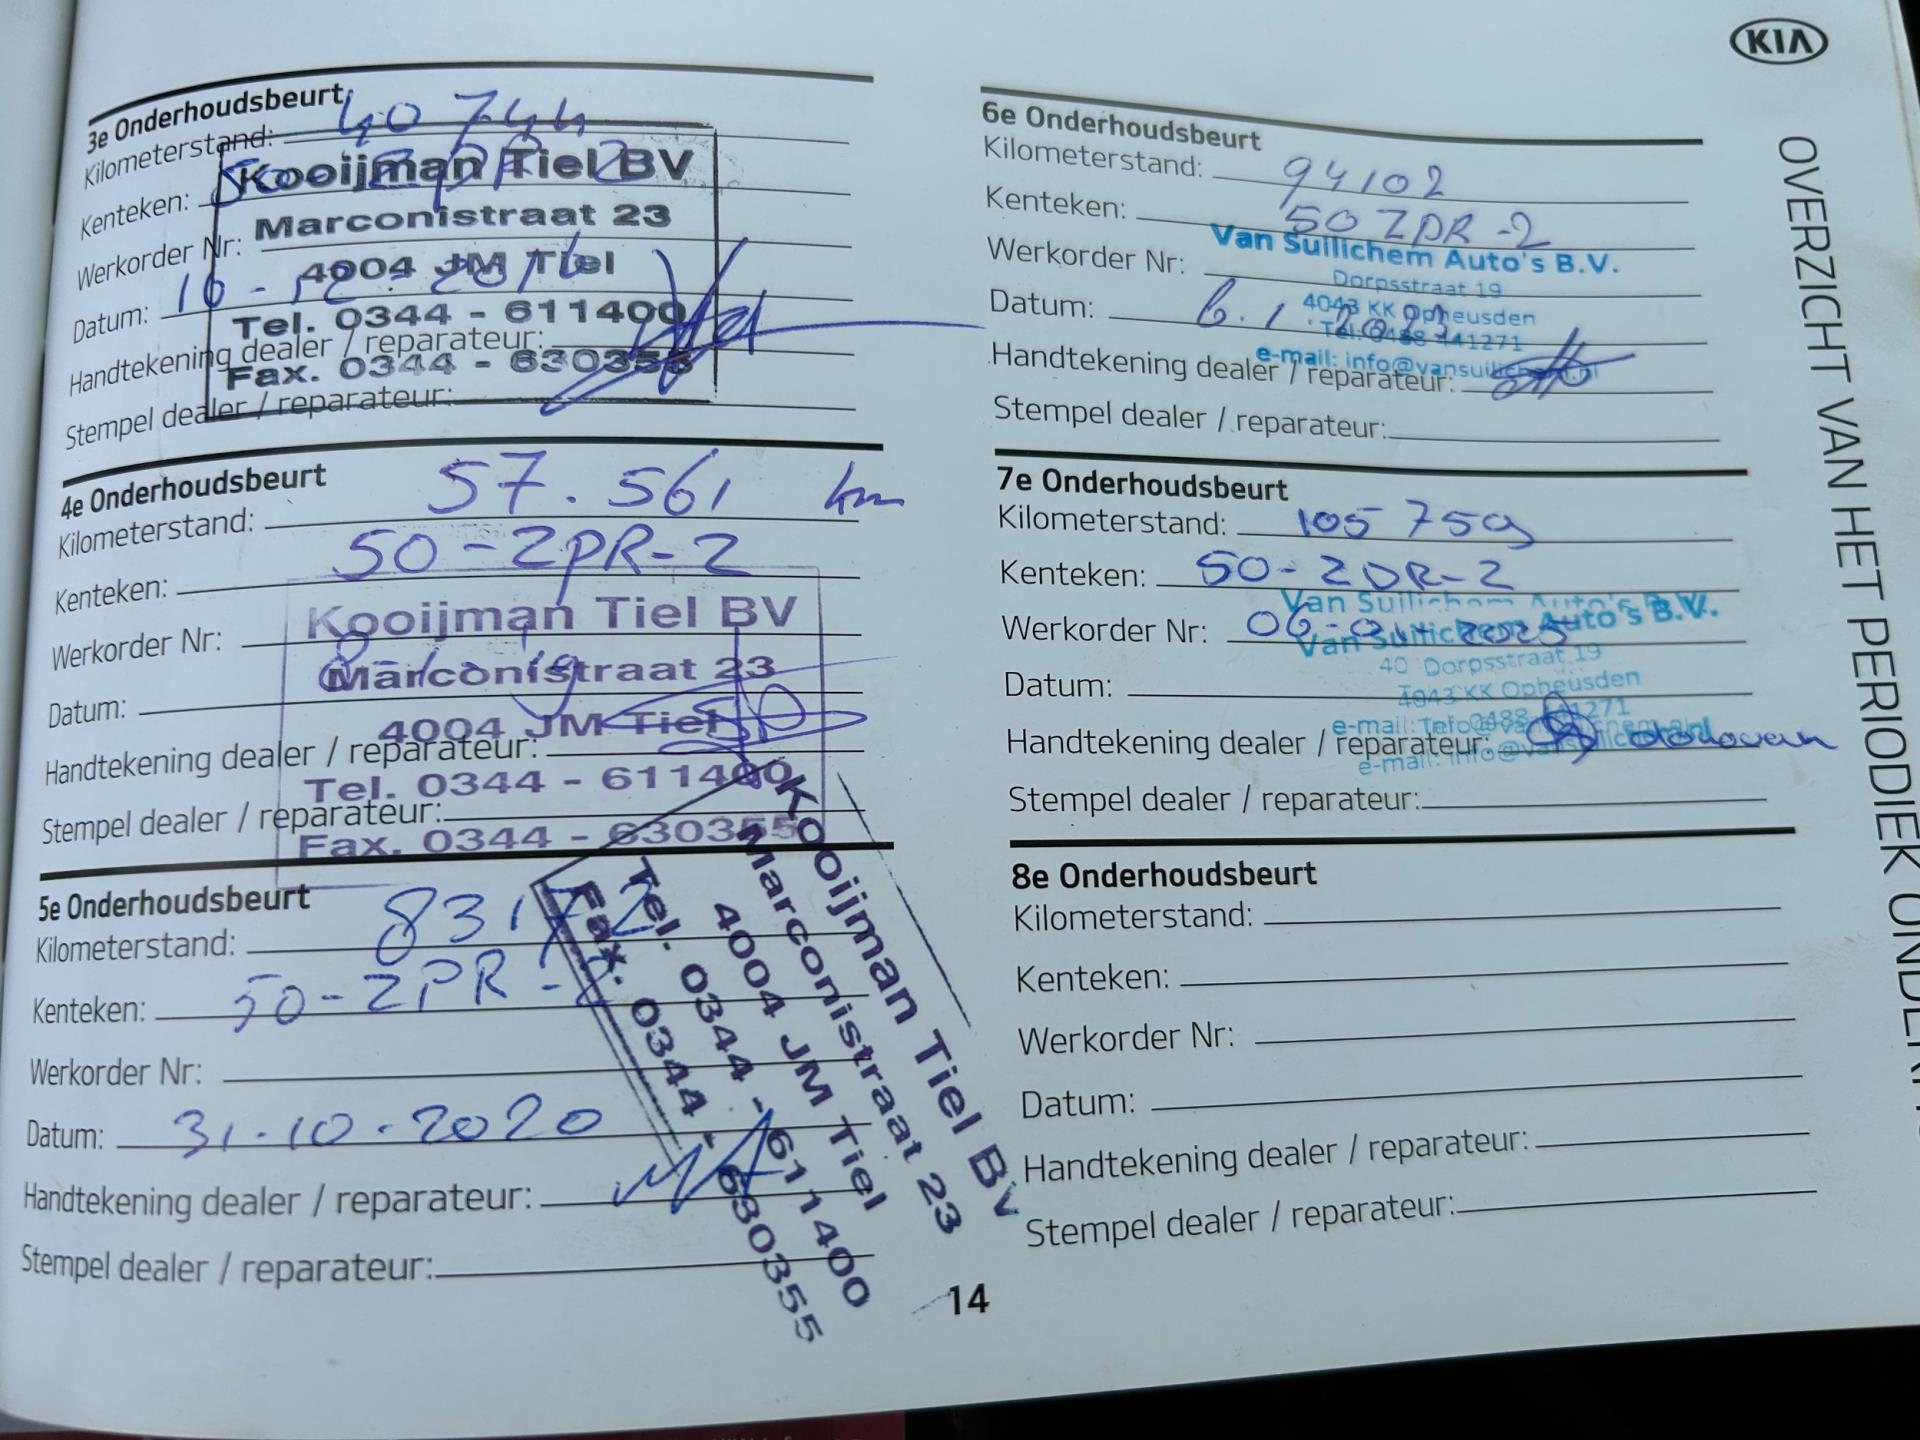 KIA
OVERZICHT VAN HET PERIODIEK
3e Onderhoudsbeurt
Kilometerstand: 40 744
Kenteken:
Werkorder Nr:
Datum: 16 - 12 - 2016
Handtekening dealer / reparateur:
Stempel dealer / reparateur:
Kooijman Tiel BV
Marconistraat 23
4004 JM Tiel
Tel. 0344 - 611400
Fax. 0344 - 630355
4e Onderhoudsbeurt
Kilometerstand: 57.561 km
Kenteken: 50-ZPR-2
Werkorder Nr:
Datum:
Handtekening dealer / reparateur:
Stempel dealer / reparateur:
Kooijman Tiel BV
Marconistraat 23
4004 JM Tiel
Tel. 0344 - 611400
Fax. 0344 - 630355
5e Onderhoudsbeurt
Kilometerstand: 83172
Kenteken: 50-ZPR-2
Werkorder Nr:
Datum: 31-10-2020
Handtekening dealer / reparateur:
Stempel dealer / reparateur:
Kooijman Tiel BV
Marconistraat 23
4004 JM Tiel
Tel. 0344 - 611400
Fax. 0344 - 630355
6e Onderhoudsbeurt
Kilometerstand: 94102
Kenteken: 50 ZPR-2
Werkorder Nr:
Datum: 6.1.2023
Handtekening dealer / reparateur:
Stempel dealer / reparateur:
Van Suilichem Auto's B.V.
Dorpsstraat 19
4043 KK Opheusden
Tel. 0488 441271
e-mail: info@vansuilichem.nl
7e Onderhoudsbeurt
Kilometerstand: 105 759
Kenteken: 50-ZPR-2
Werkorder Nr: 06-01-2025
Datum:
Handtekening dealer / reparateur:
Stempel dealer / reparateur:
Van Suilichem Auto's B.V.
Dorpsstraat 19
4043 KK Opheusden
8e Onderhoudsbeurt
Kilometerstand:
Kenteken:
Werkorder Nr:
Datum:
Handtekening dealer / reparateur:
Stempel dealer / reparateur:
14